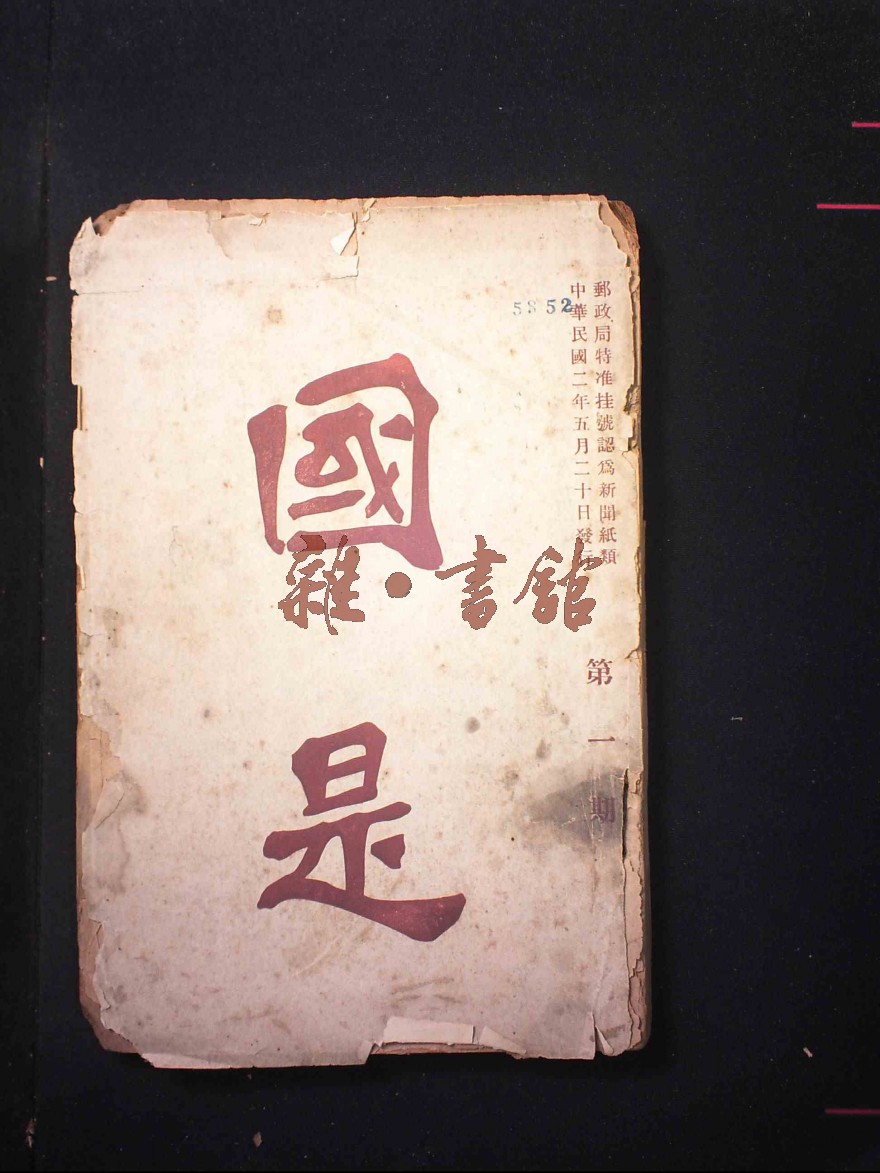 郵政局特准挂號認爲新聞紙類
中華民國二年五月二十日發行
第一期
國是
5352
雜·書館